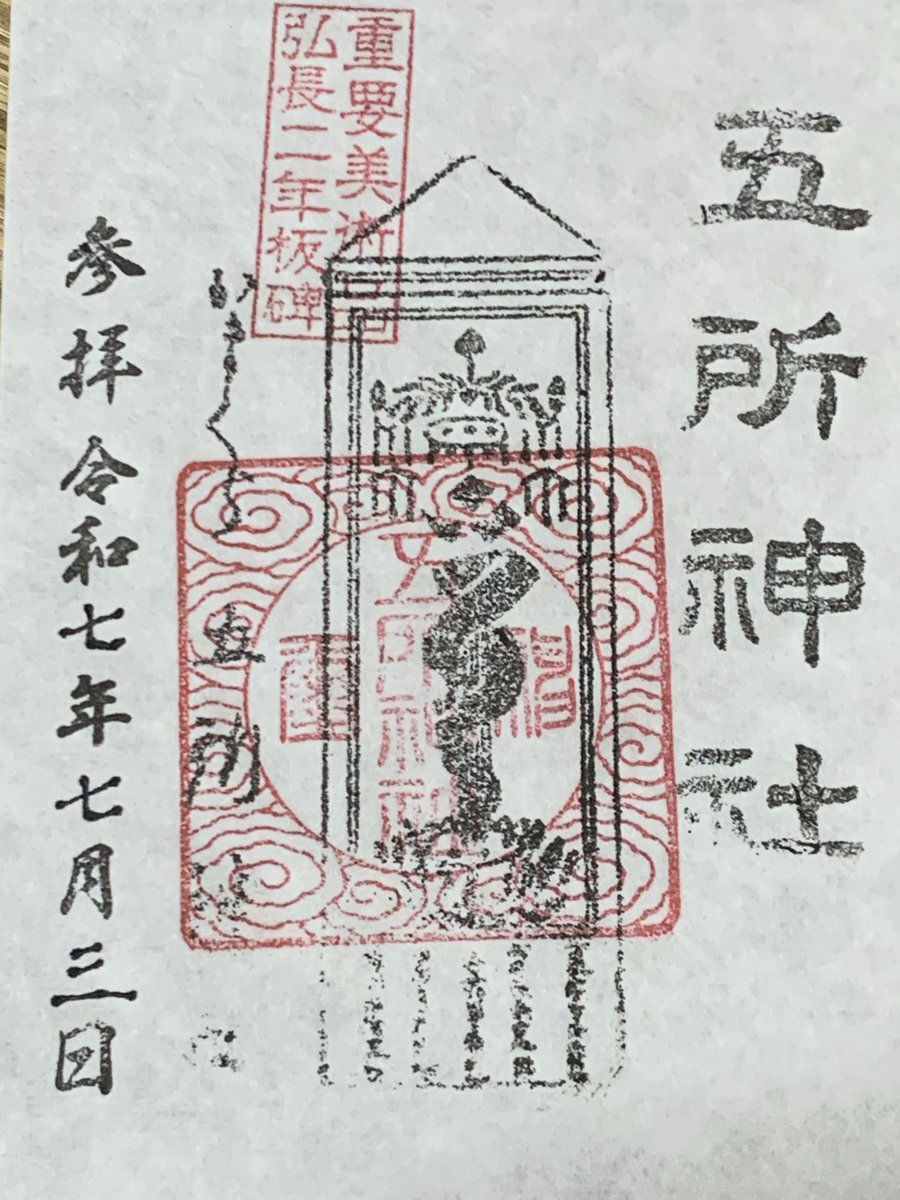 五所神社
重要美術品
弘長二年板碑
五所神社
かまくら 五所
参拝令和七年七月三日